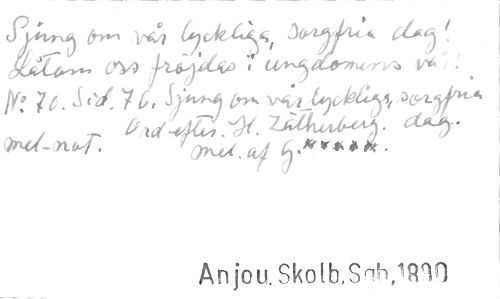 Sjung om vår lyckliga, sorgfria dag!
Låtom oss fröjdas i ungdomens vår!
No 70. Sid. 76. Sjung om vår lyckliga, sorgfria
Ord efter H. Sätherberg. dag.
mel-not. mel. af G. *****.
Anjou. Skolb. Sgb, 1890